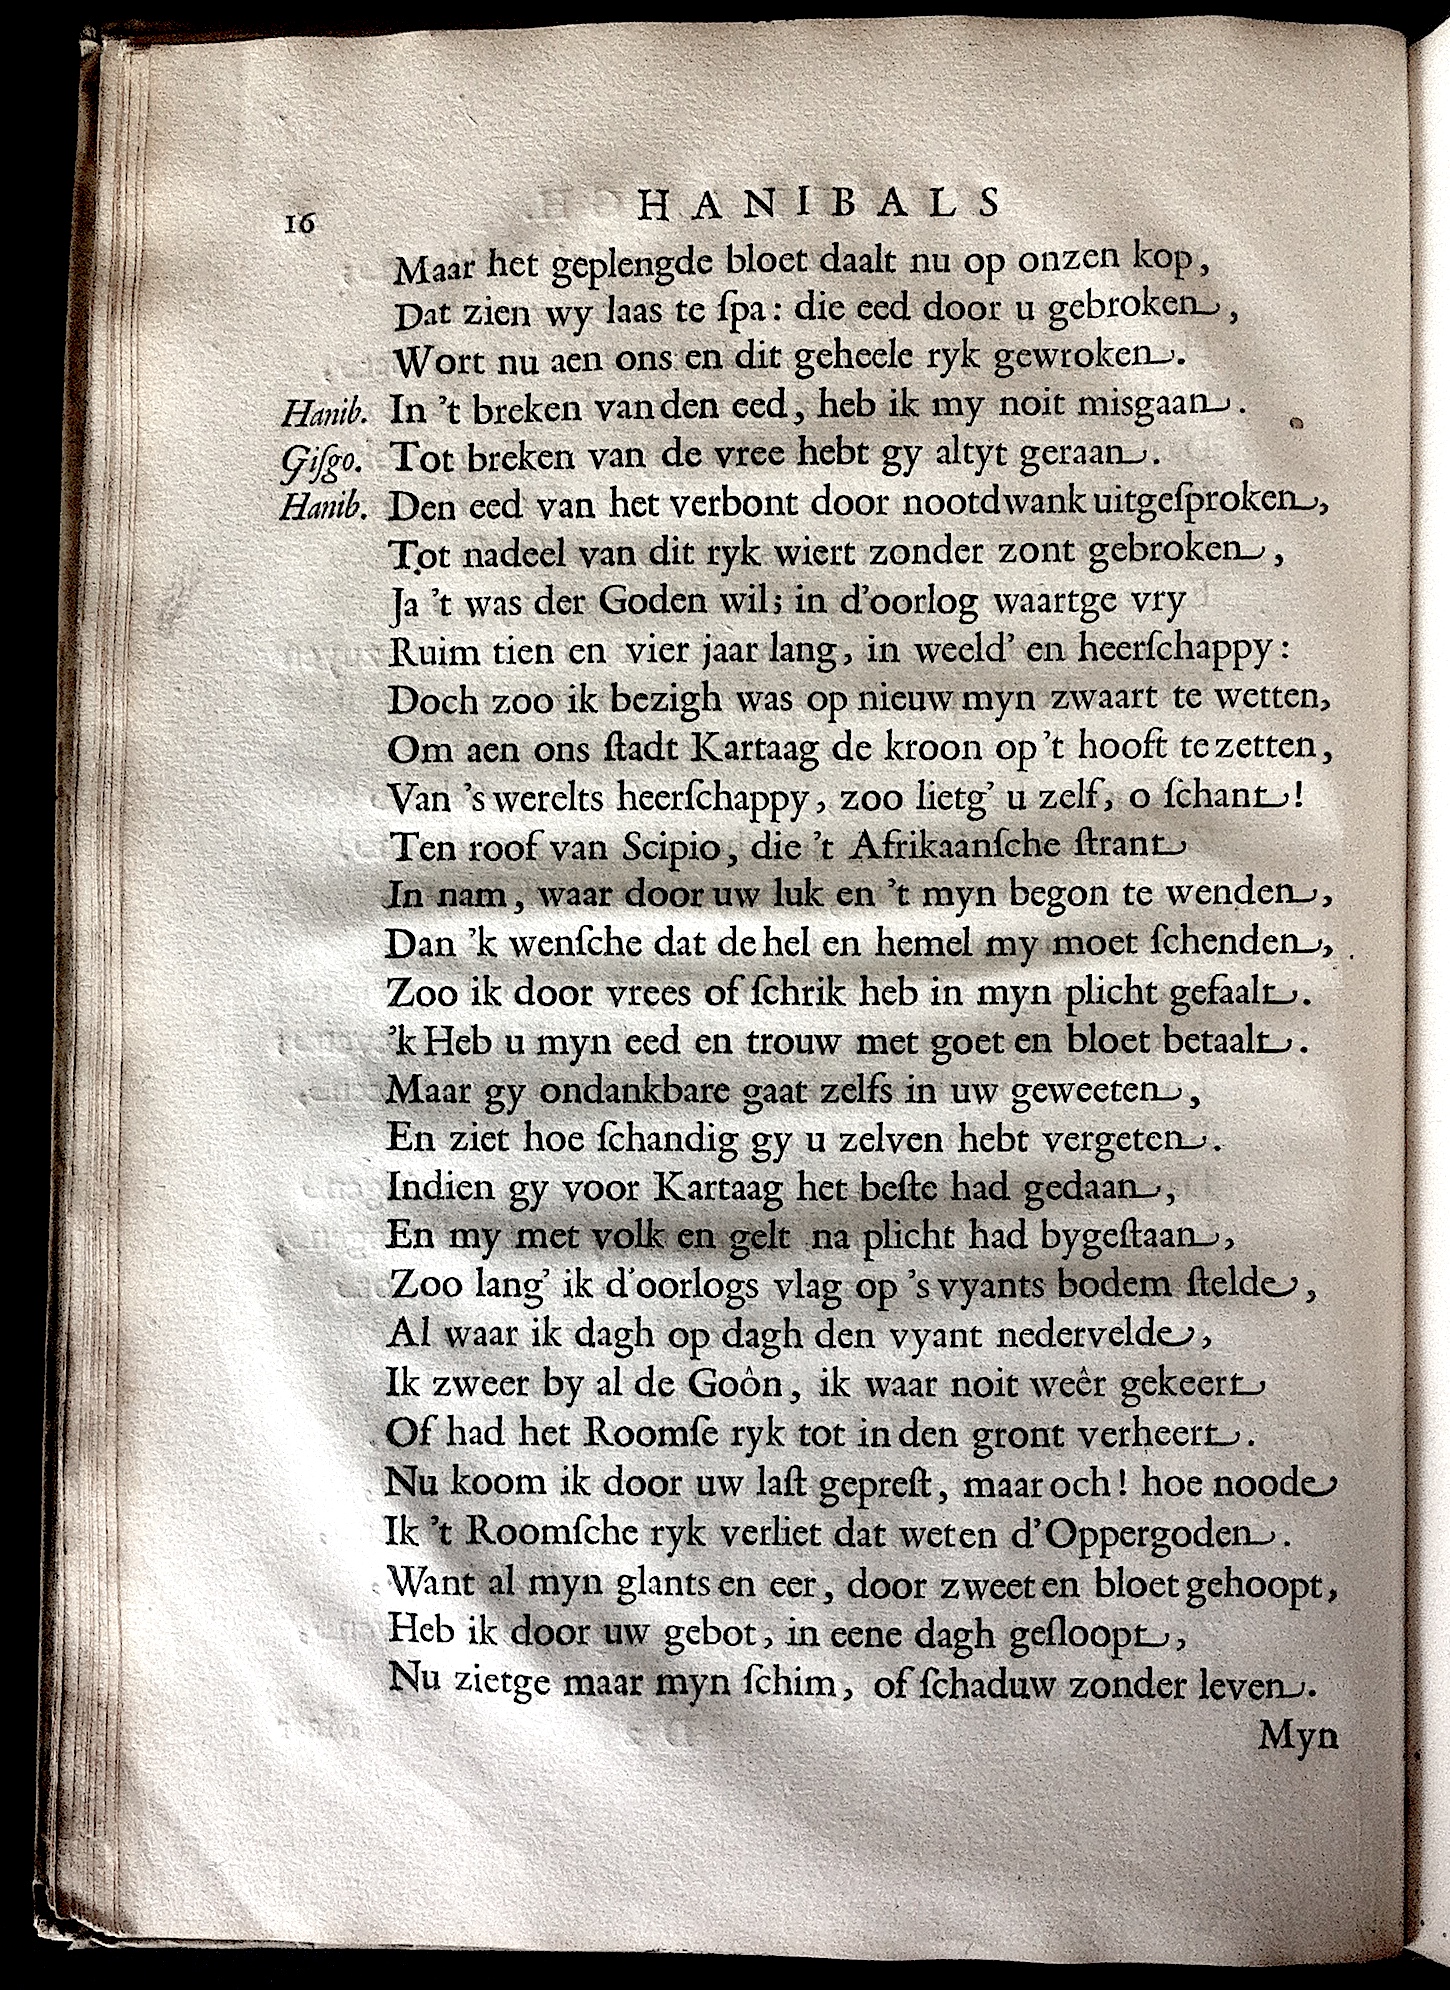 16 HANIBALS
Maar het geplengde bloet daalt nu op onzen kop,
Dat zien wy laas te ſpa: die eed door u gebroken,
Wort nu aen ons en dit geheele ryk gewroken.
Hanib. In 't breken van den eed, heb ik my noit misgaan.
Giſgo. Tot breken van de vree hebt gy altyt geraan.
Hanib. Den eed van het verbont door nootdwank uitgeſproken,
Tot nadeel van dit ryk wiert zonder zont gebroken,
Ja 't was der Goden wil; in d'oorlog waartge vry
Ruim tien en vier jaar lang, in weeld' en heerſchappy:
Doch zoo ik bezigh was op nieuw myn zwaart te wetten,
Om aen ons ſtadt Kartaag de kroon op 't hooft te zetten,
Van 's werelts heerſchappy, zoo lietg' u zelf, o ſchant!
Ten roof van Scipio, die 't Afrikaanſche ſtrant
In nam, waar door uw luk en 't myn begon te wenden,
Dan 'k wenſche dat de hel en hemel my moet ſchenden,
Zoo ik door vrees of ſchrik heb in myn plicht gefaalt.
'k Heb u myn eed en trouw met goet en bloet betaalt.
Maar gy ondankbare gaat zelfs in uw geweeten,
En ziet hoe ſchandig gy u zelven hebt vergeten.
Indien gy voor Kartaag het beſte had gedaan,
En my met volk en gelt na plicht had bygeſtaan,
Zoo lang' ik d'oorlogs vlag op 's vyants bodem ſtelde,
Al waar ik dagh op dagh den vyant nedervelde,
Ik zweer by al de Goôn, ik waar noit weêr gekeert
Of had het Roomſe ryk tot in den gront verheert.
Nu koom ik door uw laſt gepreſt, maar och! hoe noode
Ik 't Roomſche ryk verliet dat weten d'Oppergoden.
Want al myn glants en eer, door zweet en bloet gehoopt,
Heb ik door uw gebot, in eene dagh geſloopt,
Nu zietge maar myn ſchim, of ſchaduw zonder leven.
Myn